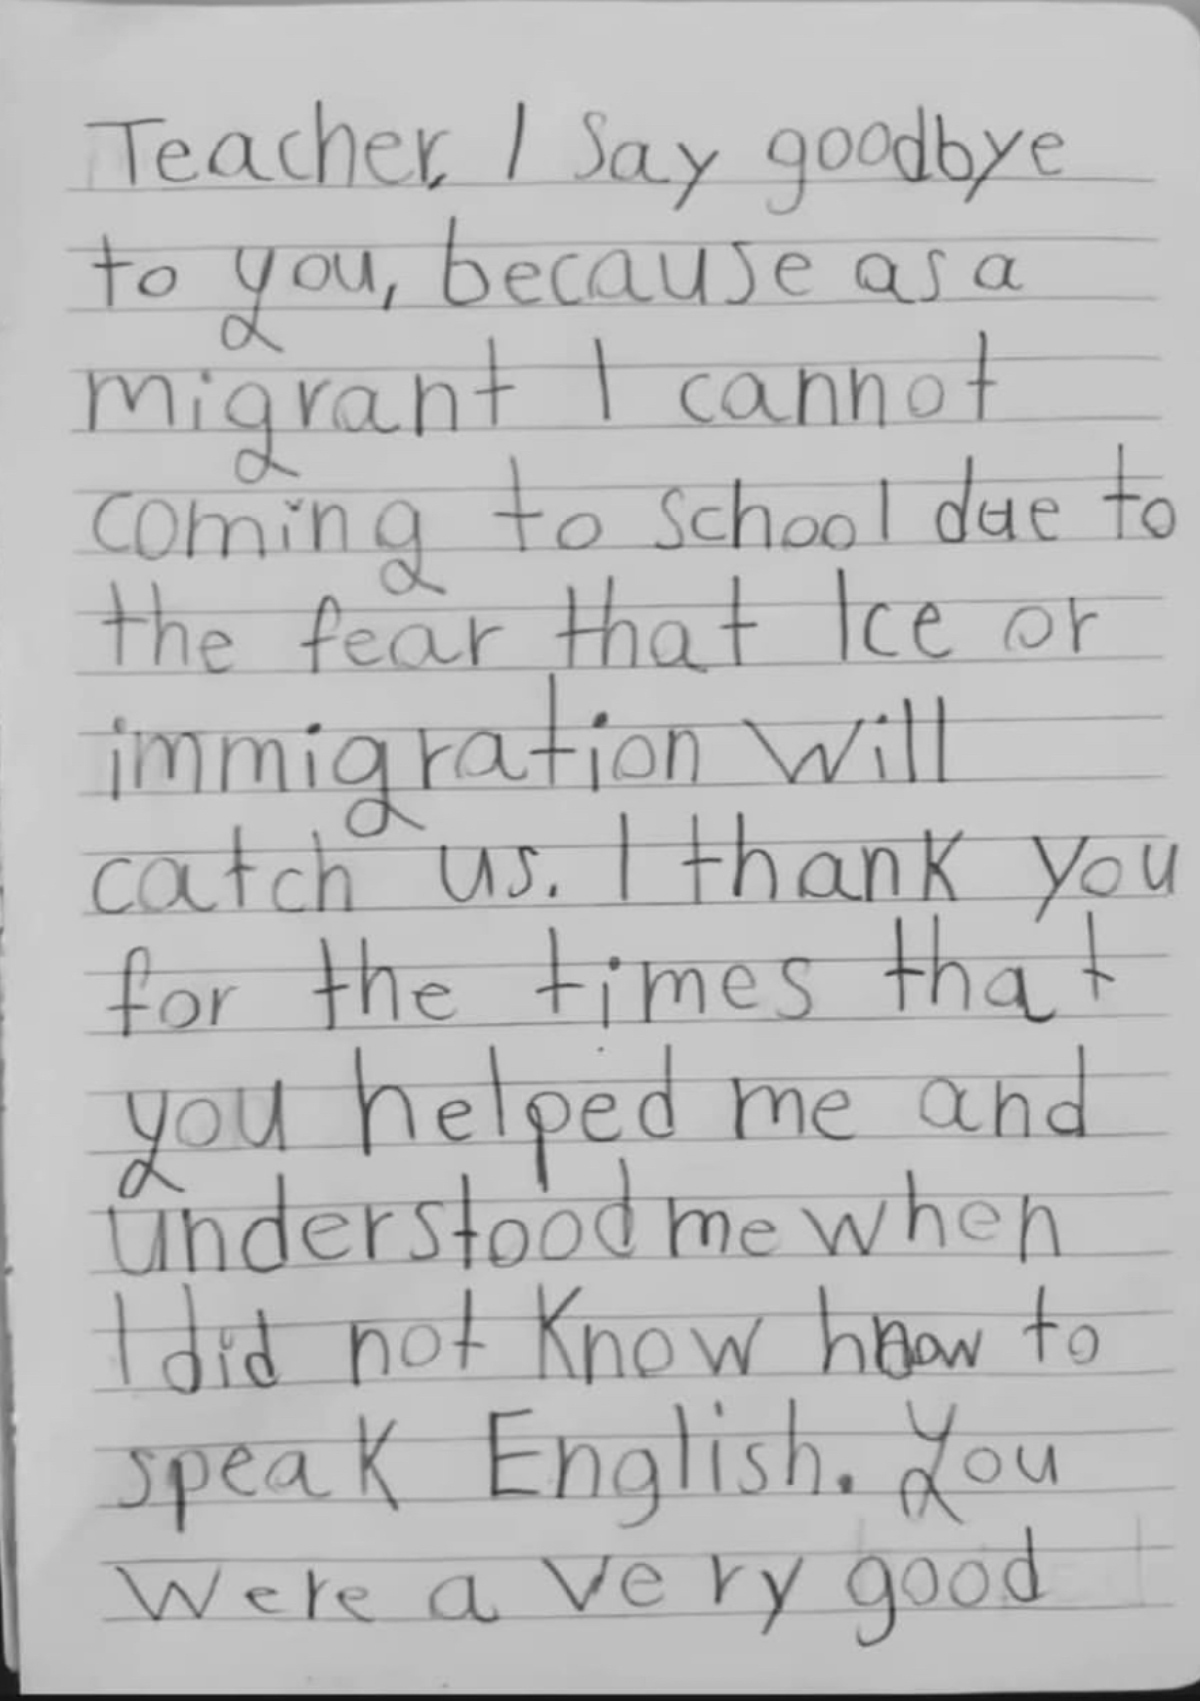 Teacher, I Say goodbye
to you, because as a
migrant I cannot
coming to school due to
the fear that Ice or
immigration will
catch us. I thank you
for the times that
you helped me and
understood me when
I did not know how to
speak English. You
were a very good